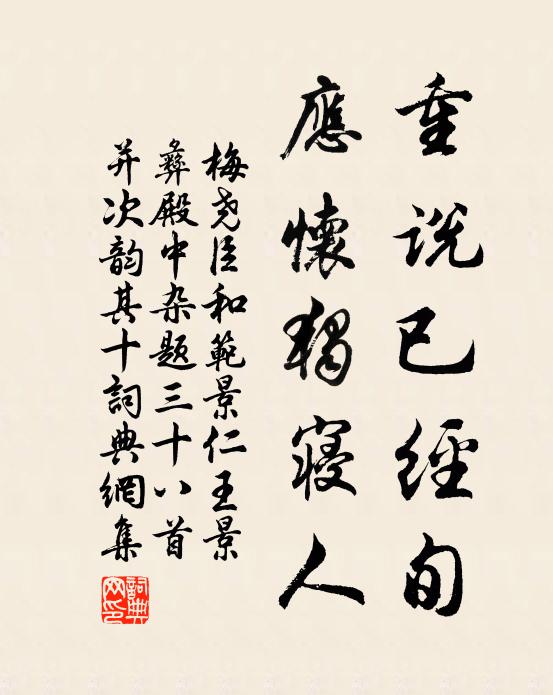 重説已經旬
應懷獨寢人
梅尧臣和範景仁王景
彝殿中杂題三十八首
并次韵其十詞典網集
詞典网印